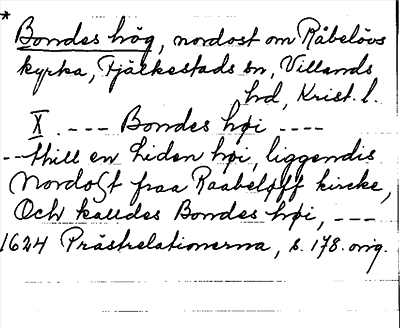 *
Bondes hög, nordost om Råbelövs
kyrka, Fjälkestads sn, Villands
hd, Krist. l.
X. ---- Bondes høi ----
--thill en Liden høi, liggendis
Nordost fraa Raabeløff kircke,
Och kalldes Bondes høi, ---
1624 Prästrelationerna, s. 178. orig.